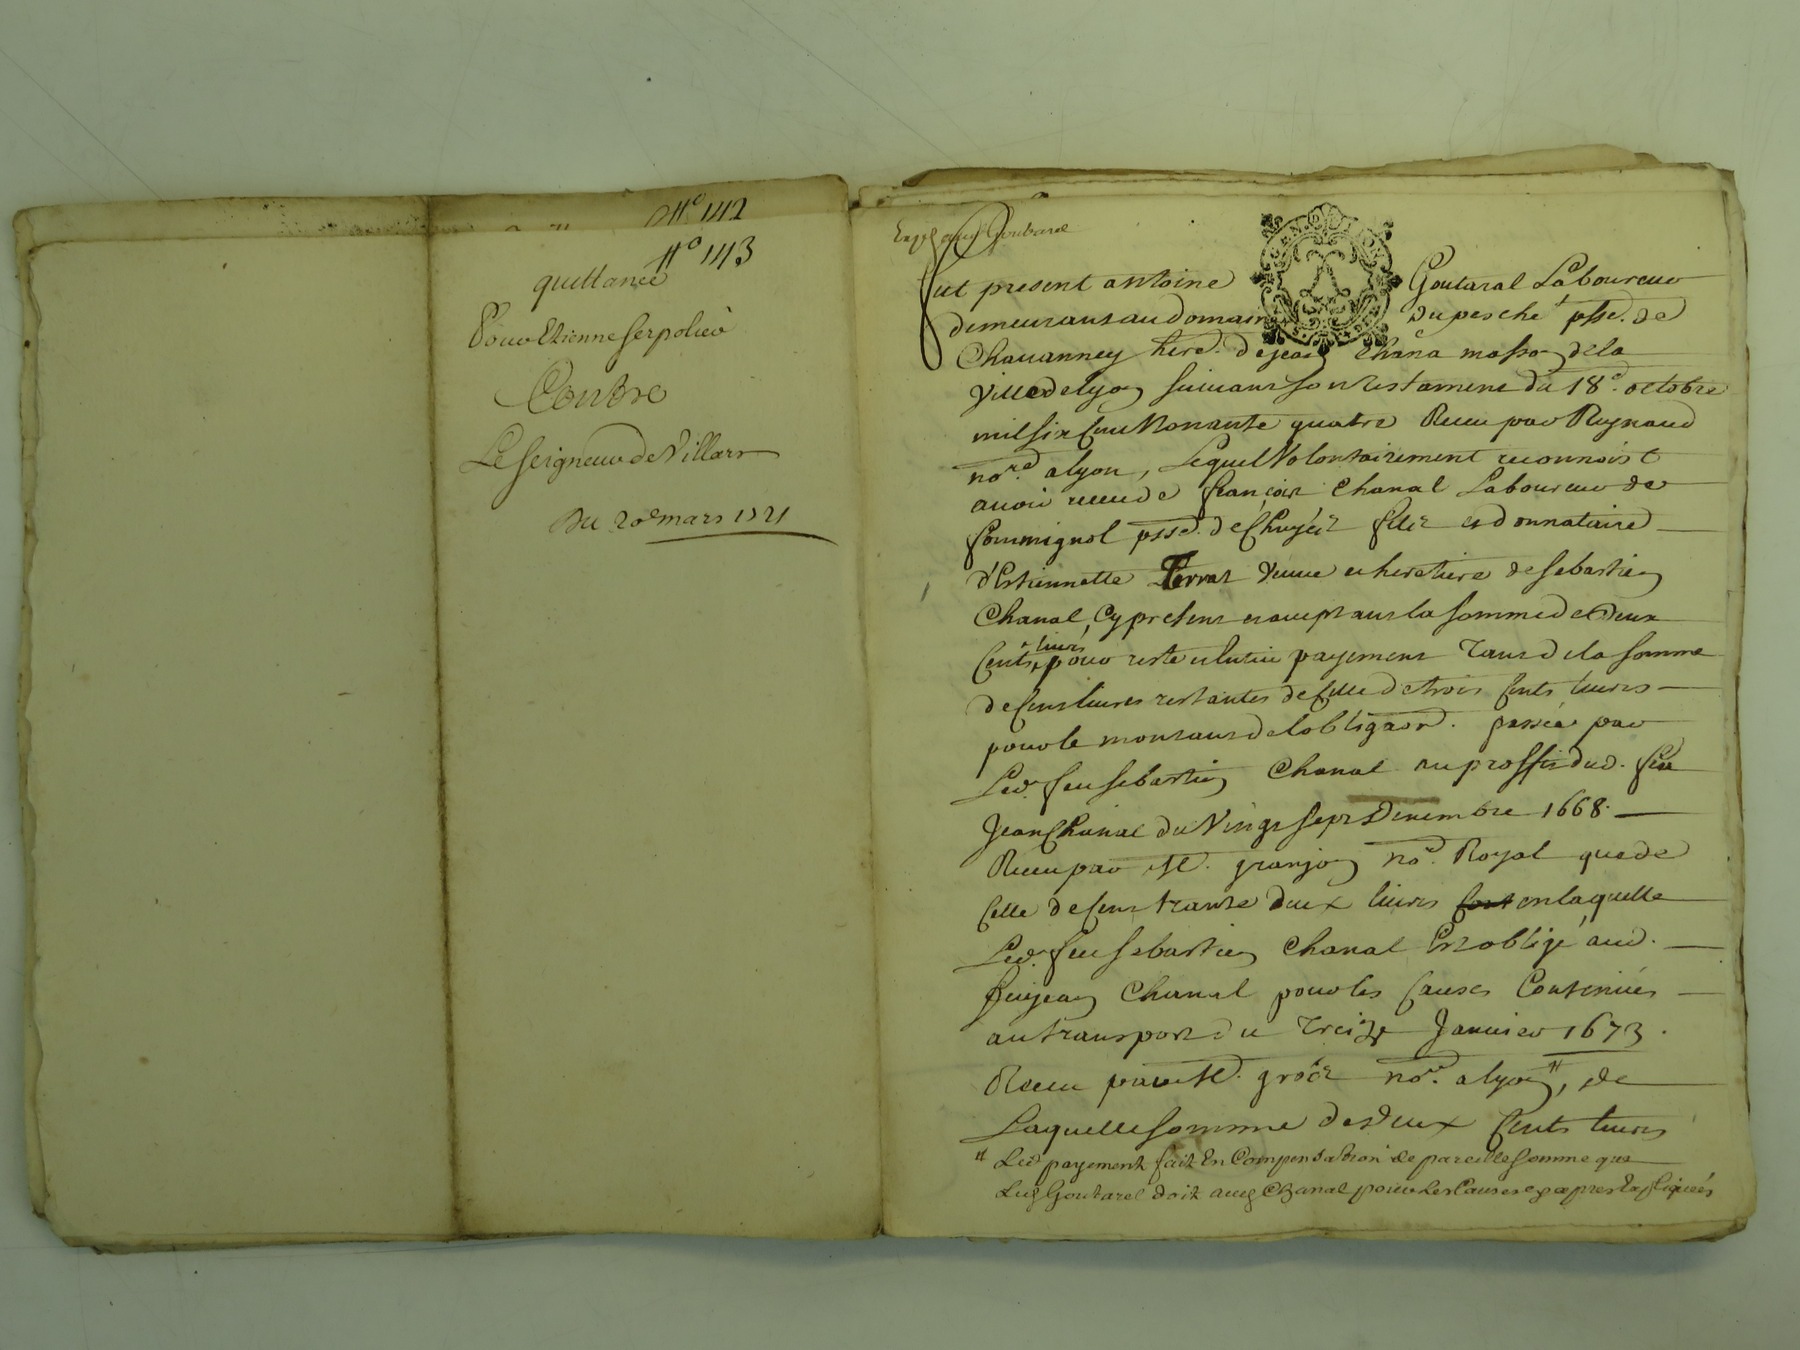 N° 142
N° 143
quittance
Pour Etienne Serpolier
Contre
Le Seigneur de Villars
Du 20e mars 1721
Goutarel
fut present antoine Goutaral Laboureur
demeurant au domaine du pesche psse. de
Chauanney here. de jean Chana masson de la
Ville de lyon suiuant son testament du 18e. octobre
mil six Cent Nonante quatre Receu par Reynaud
nore. a lyon, Lequel Volontairement reconnoist
auoir receu de françois Chanal Laboureur de
psse. de Chuyer filz et donnataire
d'Estiennette Terrat veuue et heretiere de sebastien
Chanal, Cy present et acceptant la somme de Deux
Cents liures, pour reste et entier payement tant de la somme
de Cent liures restantes de Celle de trois Cents liures
pour le montant de lobligaon. passée par
Led. feu sebastien Chanal au proffit dud. feu
Jean Chanal du Vingt sept Decembre 1668.
Receu par Me. granjon nore. Royal que de
Celle de Cent trante deux liures en laquelle
Led. feu sebastien Chanal Est obligé aud.
feu jean Chanal pour les Causes Contenües
au transport du treize Januier 1673.
Receu par Me. nore. a lyon #, de
Laquelle somme de deux Cents liures
# Led payement fait En Compensation de pareille somme que
Led Goutarel doit aud Chanal pour Les Causes cy apres Expliquées